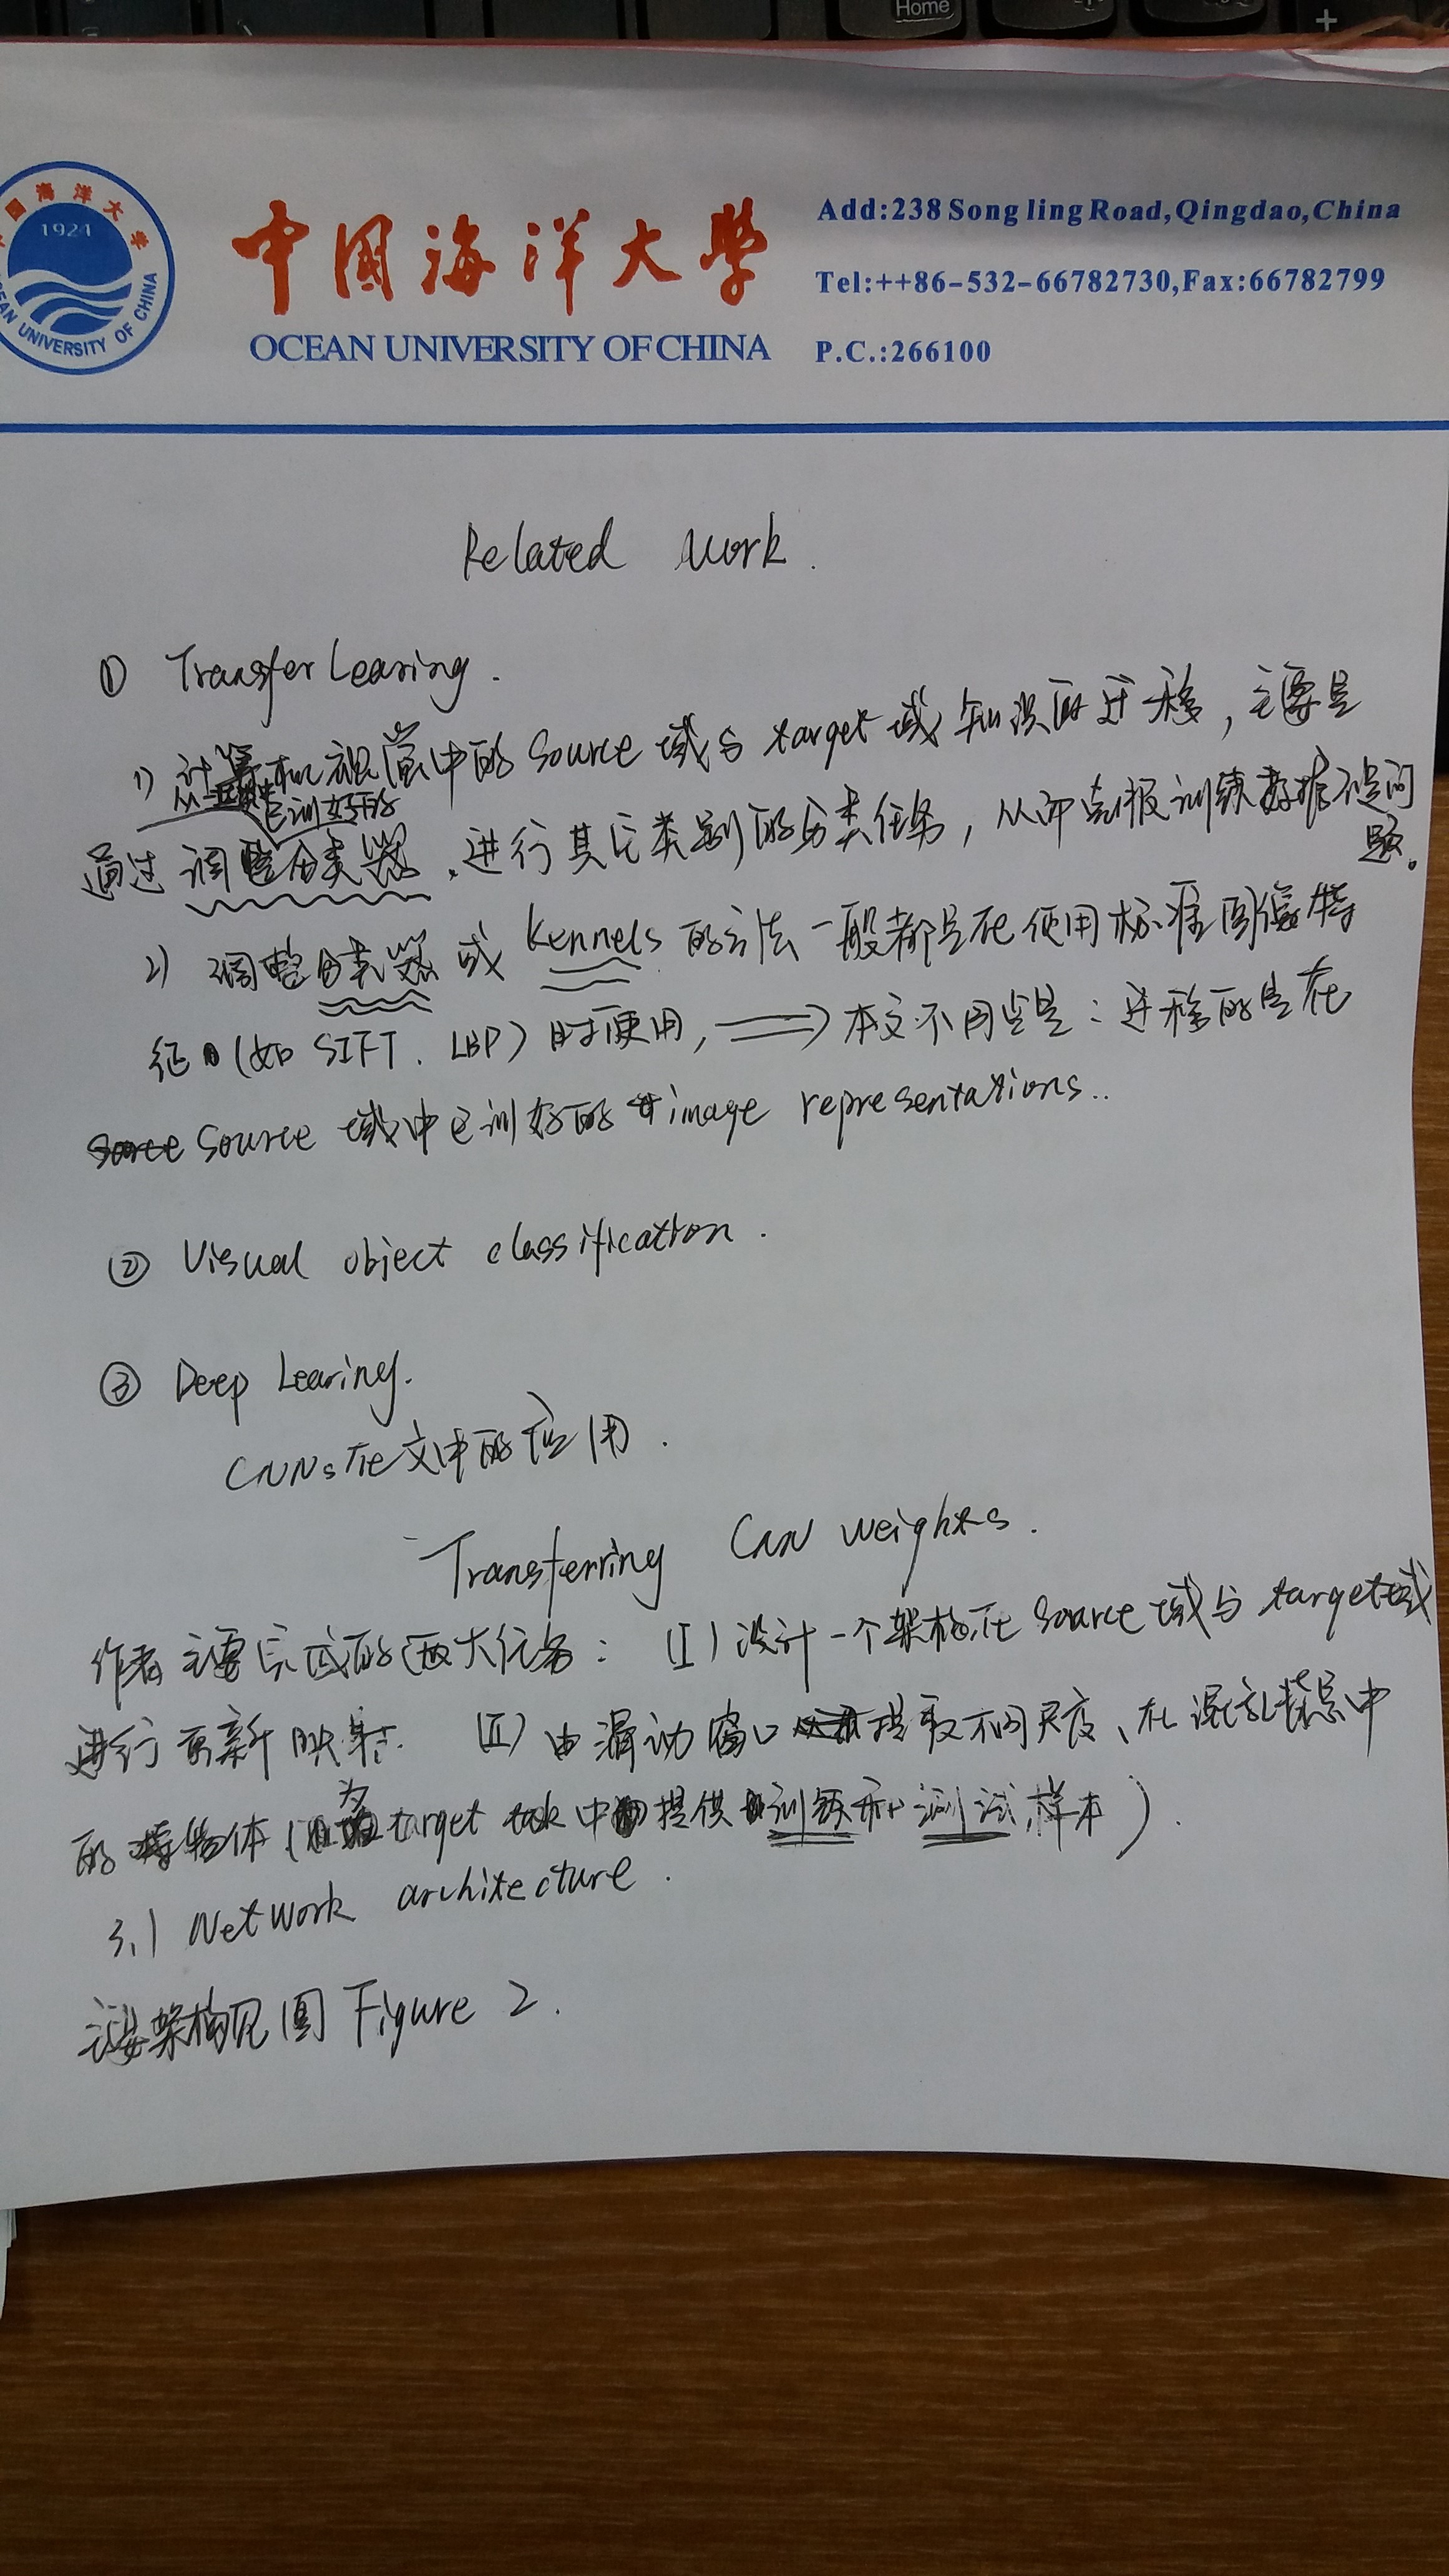 Home
国海洋大学
1924
EAN UNIVERSITY OF CHINA
中国海洋大学
OCEAN UNIVERSITY OF CHINA
Add:238 Song ling Road,Qingdao,China
Tel:++86-532-66782730,Fax:66782799
P.C.:266100
Related Work.
① Transfer Learing.
1) 计算机视觉中的 source 域与 target 域知识的迁移, 主要是
已训好的
通过调整分类器,进行其它类别的分类任务, 从而克服训练数据不足问
题。
2) 调整分类器或 Kennels 的方法一般都是在使用标准图像特
征(如 SIFT、LBP) 时使用, ⟹ 本文不同点是: 迁移的是在
source 域中已训好的 image representations..
② Visual object classification.
③ Deep Learing.
CNNs在文中的应用.
Transferring CNN weights.
作者主要完成的两大任务: (I) 设计一个架构在 source 域与 target 域
进行重新映射. (II) 由滑动窗口提取不同尺度、在混乱背景中
的物体(为 target task 中提供训练和测试样本).
3.1 Network architecture.
主要架构见图 Figure 2.